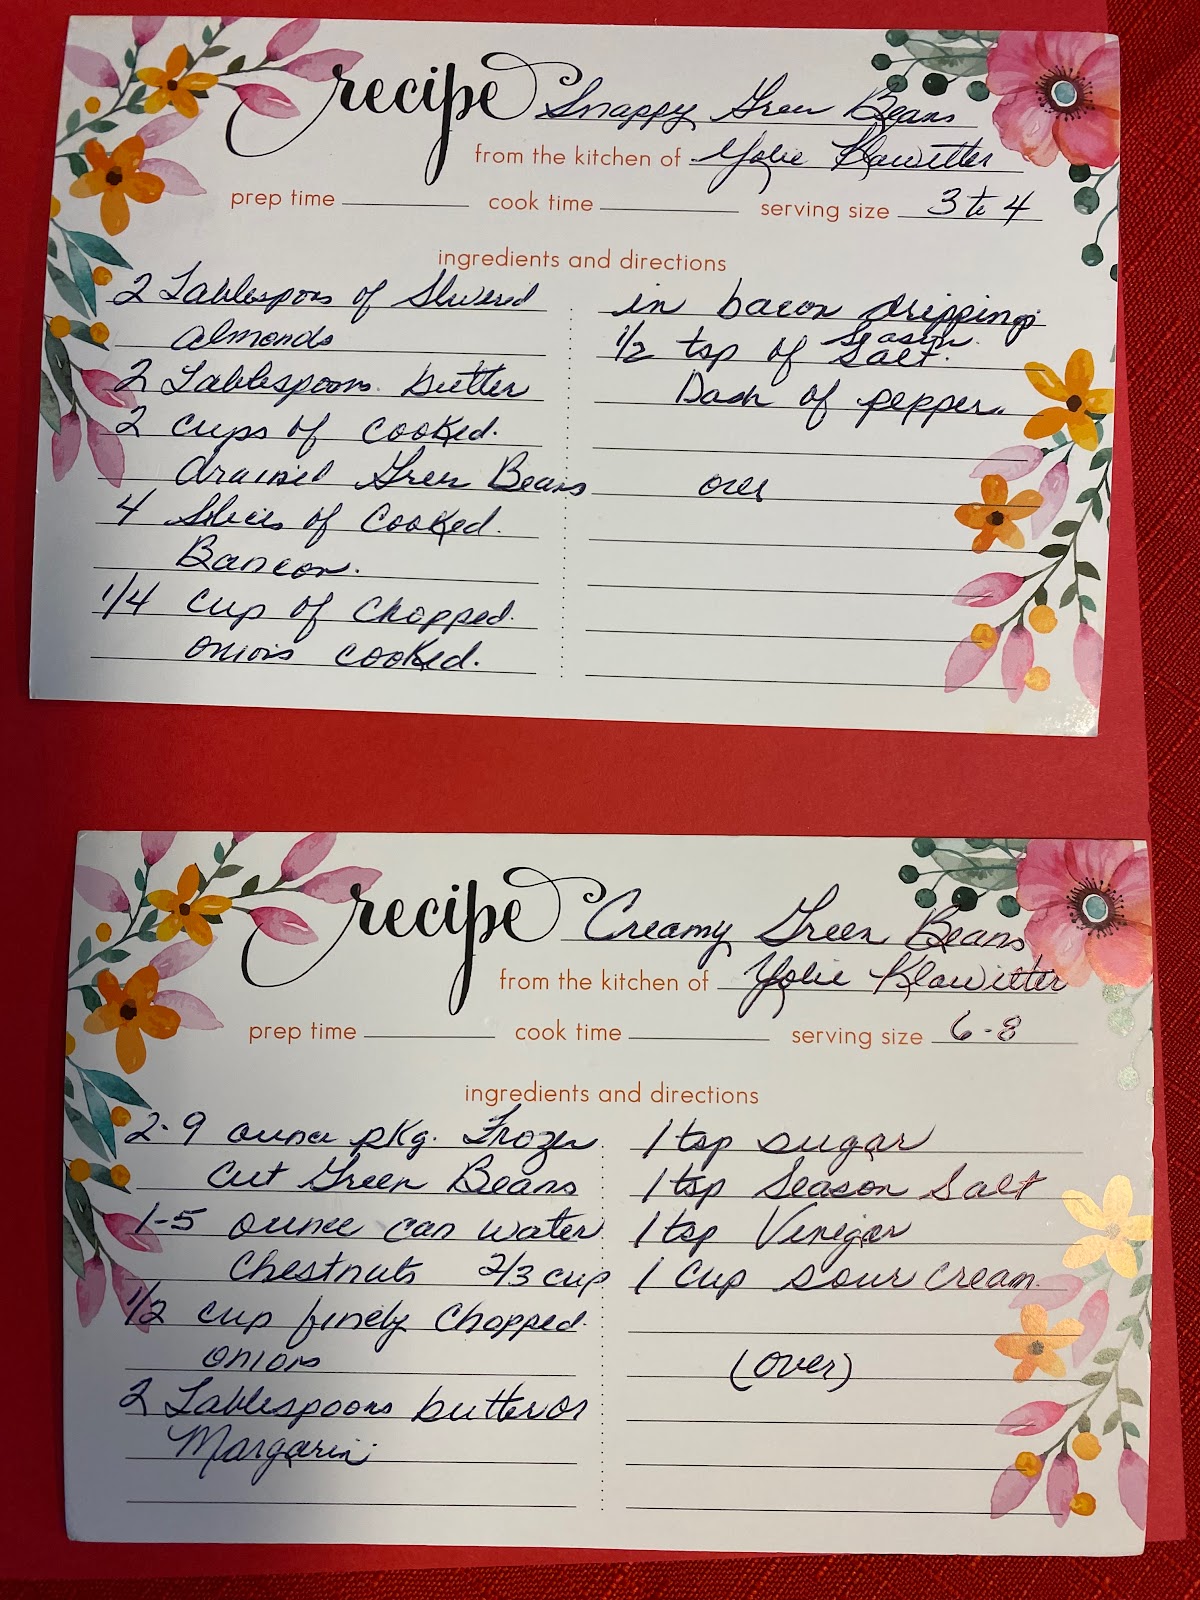 recipe Snappy Green Beans
from the kitchen of Yolie Klawitter
prep time cook time serving size 3 to 4
ingredients and directions
2 Tablespoons of Slivered
almonds
2 Tablespoons butter
2 cups of cooked.
drained Green Beans
4 Slices of Cooked.
Bancon.
1/4 cup of chopped.
onions cooked.
in bacon drippings
1/2 tsp of Season Salt.
Dash of pepper.
over
recipe Creamy Green Beans
from the kitchen of Yolie Klawitter
prep time cook time serving size 6-8
ingredients and directions
2-9 ounce pkg. Frozen
Cut Green Beans
1-5 ounce can water
Chestnuts 2/3 cup
1/2 cup finely Chopped
onions
2 Tablespoons butter or
Margarin
1 tsp sugar
1 tsp Season Salt
1 tsp Vinegar
1 cup sour cream
(over)